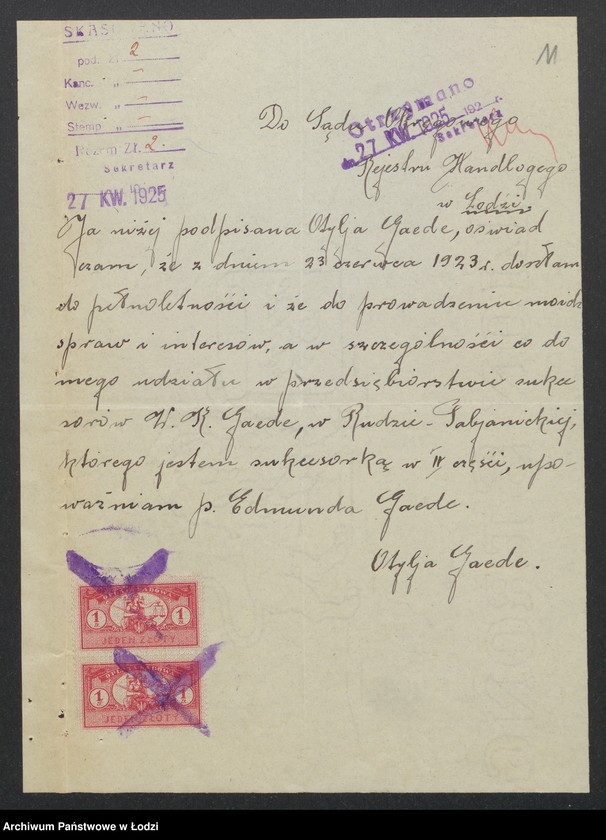 SKASOWANO
pod. Zł. 2
Kanc. " —
Wezw. " —
Stemp. " —
Razem Zł. 2.
Sekretarz
27 KW. 1925
11
Otrzymano
dn. 27 KW. 1925 192 r.
Sekretarz
Do Sądu Okręgowego
Rejestru Handlogego
w Łodzi
Ja niżej podpisana Otylja Gaede, oświad
czam, że z dniem 23 czerwca 1923 r. doszłam
do pełnoletności i że do prowadzenia moich
spraw i interesów, a w szczególności co do
mego udziału w przedsiębiorstwie sukce
sorów W. K. Gaede, w Rudzie-Pabjanickiej,
którego jestem sukcesorką w IV części, upo-
ważniam p. Edmunda Gaede.
Otylja Gaede.
OPŁATA SĄDOWA
1 1
JEDEN ZŁOTY
1 1
JEDEN ZŁOTY
Archiwum Państwowe w Łodzi